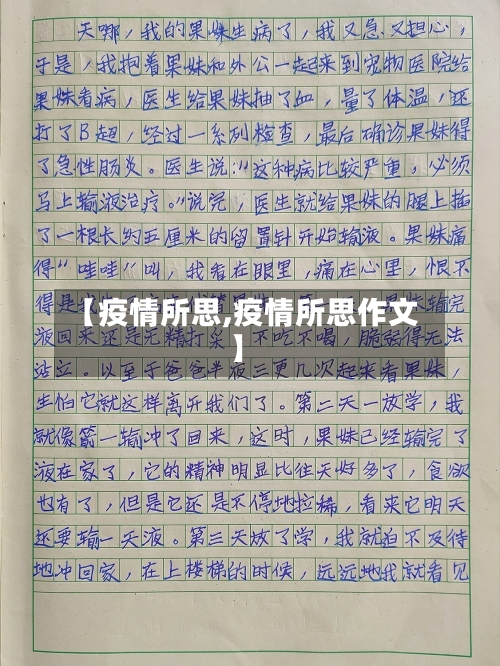 天哪，我的果妹生病了，我又急又担心，
于是，我抱着果妹和外公一起来到宠物医院给
果妹看病，医生给果妹抽了血，量了体温，还
打了B超，经过一系列检查，最后确诊果妹得
了急性肠炎。医生说："这种病比较严重，必须
马上输液治疗。"说完，医生就给果妹的腿上插
了一根长约五厘米的留置针开始输液。果妹痛
得"哇哇"叫，我看在眼里，痛在心里，恨不
得是我
输完
【疫情所思,疫情所思作文
】
液回来还是无精打采，不吃不喝，脆弱得无法
站立。以至于爸爸半夜三更几次起来看果妹，
生怕它就这样离开我们了。第二天一放学，我
就像箭一输冲了回来，这时，果妹已经输完了
液在家了，它的精神明显比往天好多了，食欲
也有了，但是它还是不停地拉稀，看来它明天
还要输一天液。第三天放了学，我就迫不及待
地冲回家，在上楼梯的时候，远远地我就看见